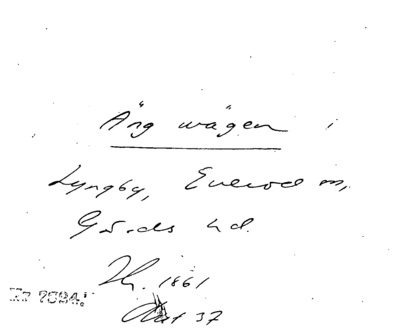 Äng wägen i
Lyngby, Everöd sn,
Gärds hd.
1861
37